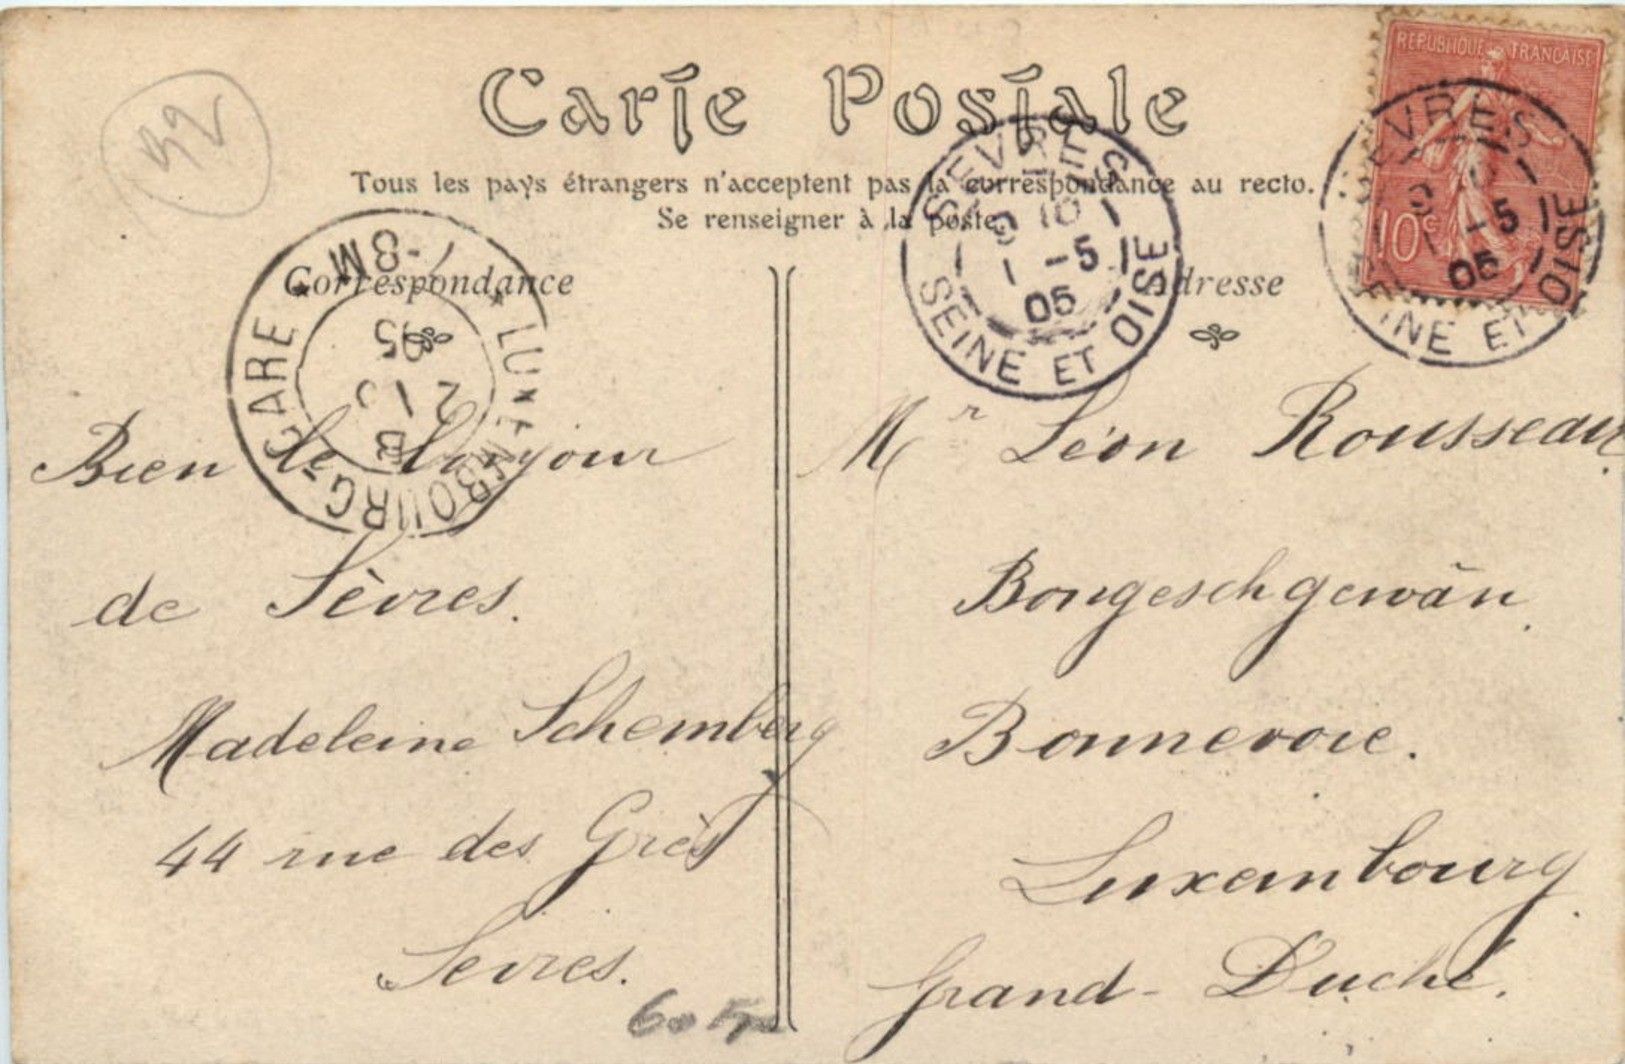 Carte Postale
Tous les pays étrangers n'acceptent pas la correspondance au recto.
Se renseigner à la poste.
Correspondance
Bien le bonjour
de Sèvres.
Madeleine Schemberg
44 rue des Grès
Sevres.
Adresse
Mr Léon Rousseau
Bongeschgewän.
Bonnevoie.
Luxembourg.
Grand-Duché.
REPUBLIQUE FRANCAISE
10c
SEVRES
1 -5
05
SEINE ET OISE
SEVRES
1 -5
05
SEINE ET OISE
LUXEMBOURG-GARE
7-8M
05